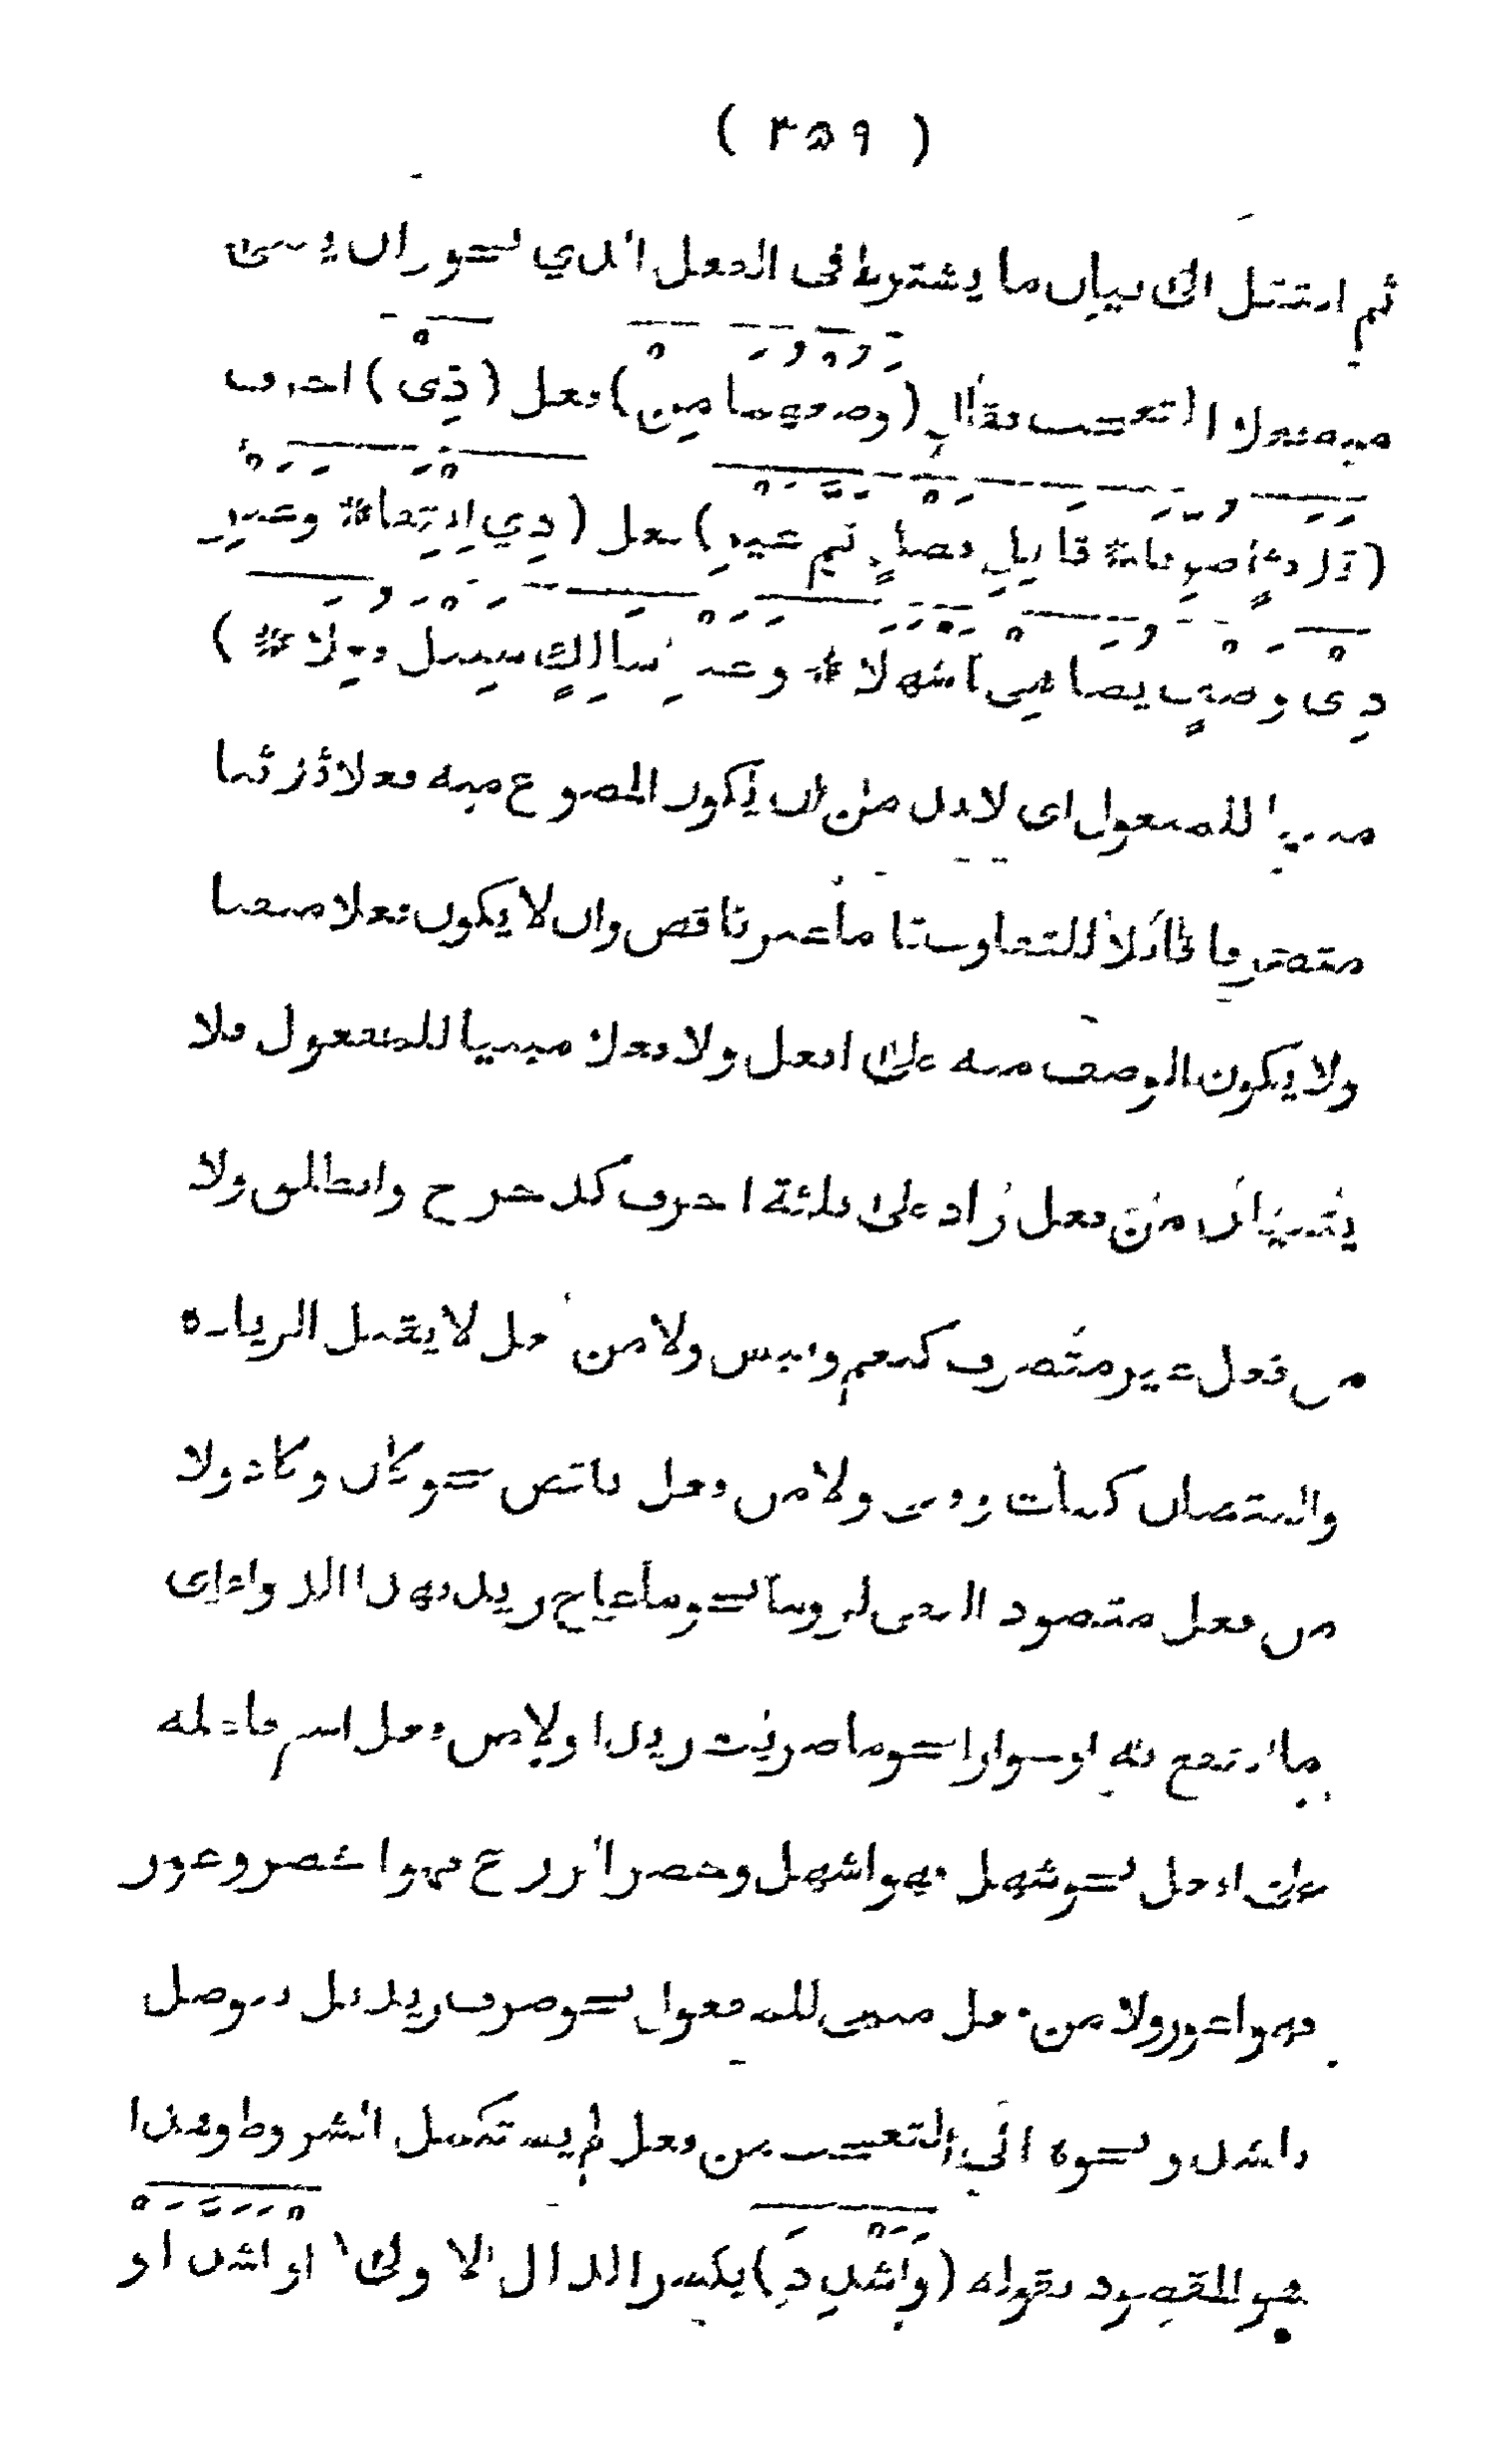 ( ٣٥٩ )
ثم انتقل الى بيان ما يشترط فى الفعل الذي يجوز ان يبنى
منه فعلا التعجب فقال (وصغهما من) فعل (ذى) احرف
(ثلاث صرفا * قابل فضل تم غير) فعل (ذي انتفا * وغير
ذى وصف يضاهى اشهلا * وغير سالك سبيل فعلا *)
مبنيا للمفعول اى لابد من ان يكون المصوغ منه فعلا ثلاثيا
متصرفا قابلا للتفاوت تاما غير ناقص وان لا يكون فعلا منفيا
ولا يكون الوصف منه على افعل ولا فعلا مبنيا للمفعول فلا
يبنيان من فعل زاد على ثلثة احرف كدحرج وانطلق ولا
من فعل غير متصرف كنعم وبئس ولا من فعل لا يقبل الزيادة
والنقصان كمات وفنى ولا من فعل ناقص نحو كان وكاد ولا
من فعل مقصود النفى لزوما نحو ما عاج زيد بهذا الدواء اى
ما انتفع به او جوازا نحو ما ضربت زيدا ولا من فعل اسم فاعله
على افعل نحو شهل فهو اشهل وخضر الزرع فهو اخضر وعور
فهو اعور ولا من فعل مبنى للمفعول نحو ضرب زيد بل يوصل
باشد ونحوه الى التعجب من فعل لم يستكمل الشروط وهذا
هو المقصود بقوله (وأشدد) بكسر الدال الاولى او اشد او